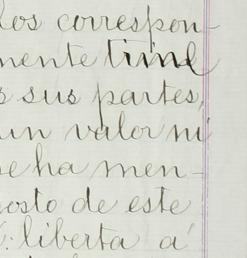 los correspon-
mente trine
s sus partes,
un valor ni
se ha men-
osto de este
: liberta á